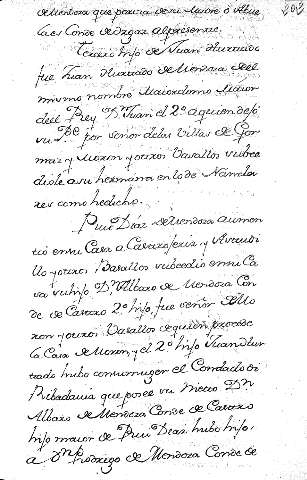 de Mendoza que parecia de su Madre o Abue
la es Conde de Orgaz al presente.
Tercero hijo de Juan Hurtado
fue Juan Hurtado de Mendoza del
mismo nombre Maiordomo Maior
del Rey Dn Juan el 2º a quien dejó
su Pe por señor de las Villas de Gor
maz y Moron y otros Vasallos subce
diole a su hermano en lo de Almaza
res como he dicho.
Rui Diaz de Mendoza aumen
tó en su Casa a Castroxeriz, y Astudi
llo y otros Basallos subcedió en su Ca
sa su hijo Dn Albaro de Mendoza Con
de de Castro 2º hijo, fue señor de Mo
ron y otros Vasallos de quien procede
la Casa de Moron, y el 2º hijo Juan Hur
tado hubo con su muger el Condado de
Ribadavia que posee su Nieto Dn
Albaro de Mendoza Conde de Castro
hijo maior de Rui Diaz hubo hijo,
a Dn Rodrigo de Mendoza Conde de